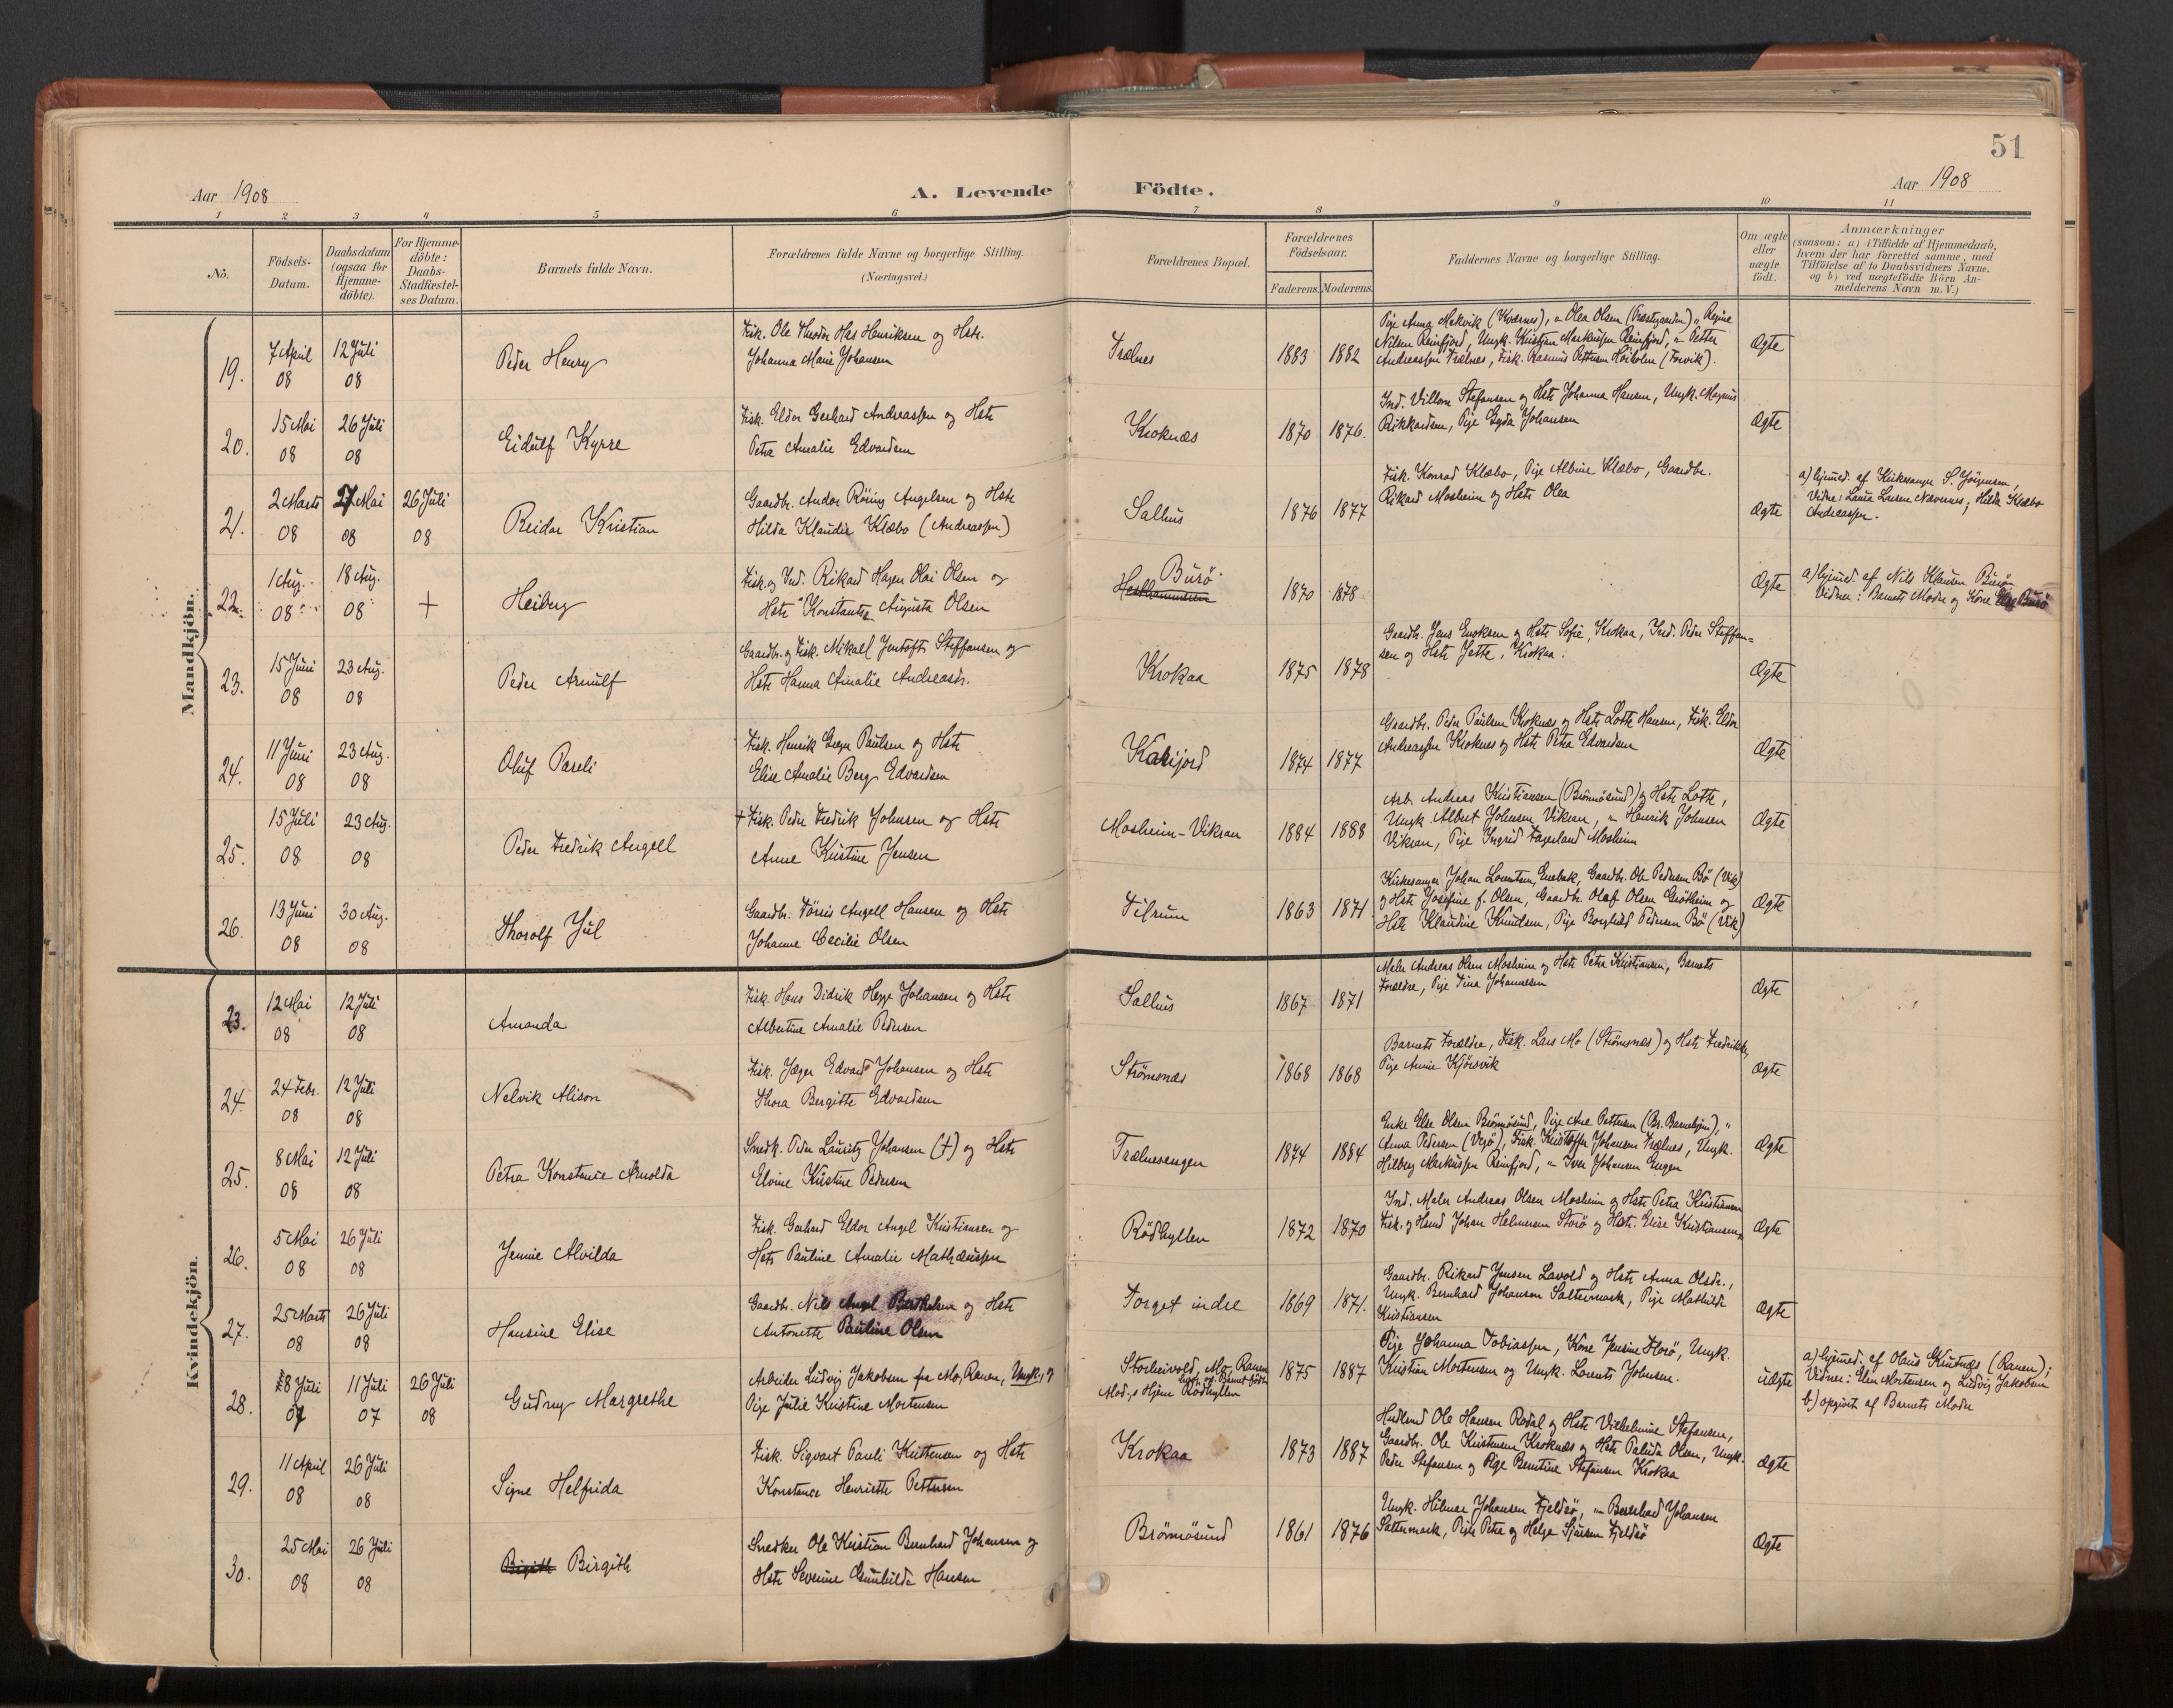 51
Aar 1908
A. Levende Födte.
Aar 1908
1 2 3 4 5 6 7 8 9 10 11
No.
Födsels-Datum.
Daabsdatum (ogsaa for Hjemme-döbte).
For Hjemme-döbte: Daabs-Stadfæstel-ses Datum.
Barnets fulde Navn.
Forældrenes fulde Navne og borgerlige Stilling.
(Næringsvei.)
Forældrenes Bopæl.
Forældrenes Födselsaar.
Faderens. Moderens.
Faddernes Navne og borgerlige Stilling.
Om ægte eller uægte födt.
Anmærkninger
(saasom: a) i Tilfælde af Hjemmedaab,
hvem der har forrettet samme, med
Tilföielse af to Daabsvidners Navne.
og b) ved uægtefödte Börn An-
melderens Navn m. V.)
Mandkjön.
19. 7 April 08 12 Juli 08 Peder Henry
Fisk. Ole Theodor Has Henriksen og Hstr.
Johanna Marie Johansen
Trælnes 1883 1882
Pige Anna Mekvik (Kvernes), " Olea Olsen (Præstgaarden) " Regine
Nilsen Reinfjord, Ungk. Kristjan Markussen Reinfjord, " Petter
Andreassen Trælnes, Fisk. Rasmus Pettersen Höiholm (Forvik).
Ægte
20. 15 Mai 08 26 Juli 08 Eidulf Kyrre
Fisk. Eldor Gerhard Andreassen og Hstr
Petra Amalie Edvardsen
Kroknæs 1870 1876.
Ind. Villum Stefansen og Hstr Johanna Hansen, Ungk. Magnus
Rikkardsen, Pige Gyda Johansen
Ægte
21. 2 Marts 08 27 Mai 08 26 Juli 08 Reidar Kristian
Gaardbr. Andor Röring Angelsen og Hstr
Hilda Klaudie Klæbo (Andreassen)
Salhus 1876 1877
Fisk. Konrad Klæbo, Pige Albine Klæbo, Gaardbr.
Rikard Mosheim og Hstr Olea
Ægte
a) hjemmed. af Kirkesanger S. Jörgensen,
Vidner: Laura Larsen Nævernes; Hilda Klæbo
Andreassen.
22. 1 Aug. 08 18 Aug. 08 + Heiberg
Fisk. og Ind. Rikard Hagen Olai Olsen og
Hstr Konstantse Augusta Olsen
Burö
1870 1878
Ægte
a) hjemmed. af Nils Klausen Burö
Vidner: Barnets Moder og Kone Else Burö
23. 15 Juni 08 23 Aug. 08 Peder Arnulf
Gaardbr. og Fisk. Mikael Jentoft Steffansen og
Hstr Hanna Amalie Andreasdr.
Krokaa 1875 1878
Gaardbr. Jens Enoksen og Hstr Sofie, Krokaa, Ind. Peder Steffan-
sen og Hstr Jette, Krokaa.
Ægte
24. 11 Juni 08 23 Aug. 08 Oluf Pareli
Fisk. Henrik Greger Paulsen og Hstr
Elise Amalie Berg Edvardsen
Karijord 1874 1877
Gaardbr. Peder Paulsen Kroknæs og Hstr Lotte Hansen, Fisk. Eldor
Andreassen Kroknes og Hstr Petra Edvardsen
Ægte
25. 15 Juli 08 23 Aug. 08 Peder Fredrik Angell
+ Fisk. Peder Fredrik Johnsen og Hstr
Anne Kristine Jensen
Mosheim-Vikran 1884 1888
Arb. Andreas Kristiansen (Brönnösund) og Hstr Lotte,
Ungk. Albert Johnsen Vikran, " Henrik Johnsen
Vikran, Pige Ingrid Fagerland Mosheim
Ægte
26. 13 Juni 08 30 Aug. 08 Thorolf Jul
Gaardbr. Törris Angell Hansen og Hstr
Johanne Cecilie Olsen
Tilrum 1863 1871
Kirkesanger Johan Lorentsen, Enebak, Gaardbr. Ole Pedersen Bö (Vik)
og Hstr Josefine f. Olsen, Gaardbr. Olaf Olsen Grötheim og
Hstr Klaudine Knudsen, Pige Borghild Pedersen Bö (Vik)
Ægte
Kvindekjön.
23. 12 Mai 08 12 Juli 08 Amanda
Fisk. Hans Didrik Hegge Johansen og Hstr
Albertine Amalie Pedersen
Salhus 1867 1871
Maler Andreas Olsen Mosheim og Hstr Petra Kristiansen, Barnets
Forældre, Pige Tina Johannesen
Ægte
24. 24 Febr. 08 12 Juli 08 Nelvik Alison
Fisk. Jæger Edvard Johansen og Hstr
Thora Bergitte Edvardsen
Strömsnæs 1868 1868
Barnets Forældre, Fisk. Lars Mo (Strömsnæs) og Hstr Fredrikke,
Pige Annie Kjörsvik
Ægte
25. 8 Mai 08 12 Juli 08 Petra Konstance Arnolda
Snedk. Peder Lauritz Johansen (+) og Hstr
Elvine Kristine Pedersen
Trælnesengen 1874 1884
Enke Else Olsen Brönnösund, Pige Ane Pettersen (Br. Barnehjem), "
Anna Pedersen (Vegö), Fisk. Kristoffer Johansen Trælnes, Ungk.
Hilberg Markussen Reinfjord, " Iver Johansen Engen
Ægte
26. 5 Mai 08 26 Juli 08 Jennie Alvilda
Fisk. Gerhard Eldor Angel Kristiansen og
Hstr Pauline Amalie Mathæussen
Rödhyllen 1872 1870
Ind. Maler Andreas Olsen Mosheim og Hstr Petra Kristiansen
Fisk. og Hmd Johan Helmersen Storö og Hstr. Elise Kristiansen,
Ægte
27. 25 Marts 08 26 Juli 08 Hansine Elise
Gaardbr. Nils Angel Bertelsen og Hstr
Antonette Pauline Olsen
Torget indre 1869 1871.
Gaardbr. Rikard Jensen Lavold og Hstr Anna Olsdr.,
Ungk. Bernhard Johansen Saltermark, Pige Mathilde
Kristiansen
Ægte
28. 8 Juni 07 11 Juli 07 26 Juli 08 Gudrny Margrethe
Arbeider Ludvig Jakobsen fra Mo, Ranen, Ungk., og
Pige Julie Kristine Mortensen
Storheivold, Mo, Ranen
Mod.s Hjem Rödhyllen
1875 1887
Pige Johanna Tobiassen, Kone Jensine Horö, Ungk.
Kristian Mortensen og Ungk. Lorents Johnsen.
uægte
a) hjemmed. af Olaus Knutnæs (Ranen);
Vidner: Elen Mortensen og Ludvig Jakobsen
b) opgivet af Barnets Moder
29. 11 April 08 26 Juli 08 Signe Helfrida
Fisk. Sigvart Pareli Kristensen og Hstr
Konstance Henriette Pettersen
Krokaa 1873 1887
Husmand Ole Hansen Rodal og Hstr Vilhelmine Stefansen,
Gaardbr. Ole Kristensen Kroknæs og Hstr Pelida Olsen, Ungk.
Peder Stefansen og Pige Berntine Stefansen Krokaa
Ægte
30. 25 Mai 08 26 Juli 08 Birgith Birgith
Snedker Ole Kristian Bernhard Johansen og
Hstr Severine Gunhilda Hansen
Brönnösund 1861 1876
Ungk. Hilmar Johansen Fjeldsö, " Bernhard Johansen
Saltermark, Pige Petra og Helga Sjursen Fjeldsö
Ægte